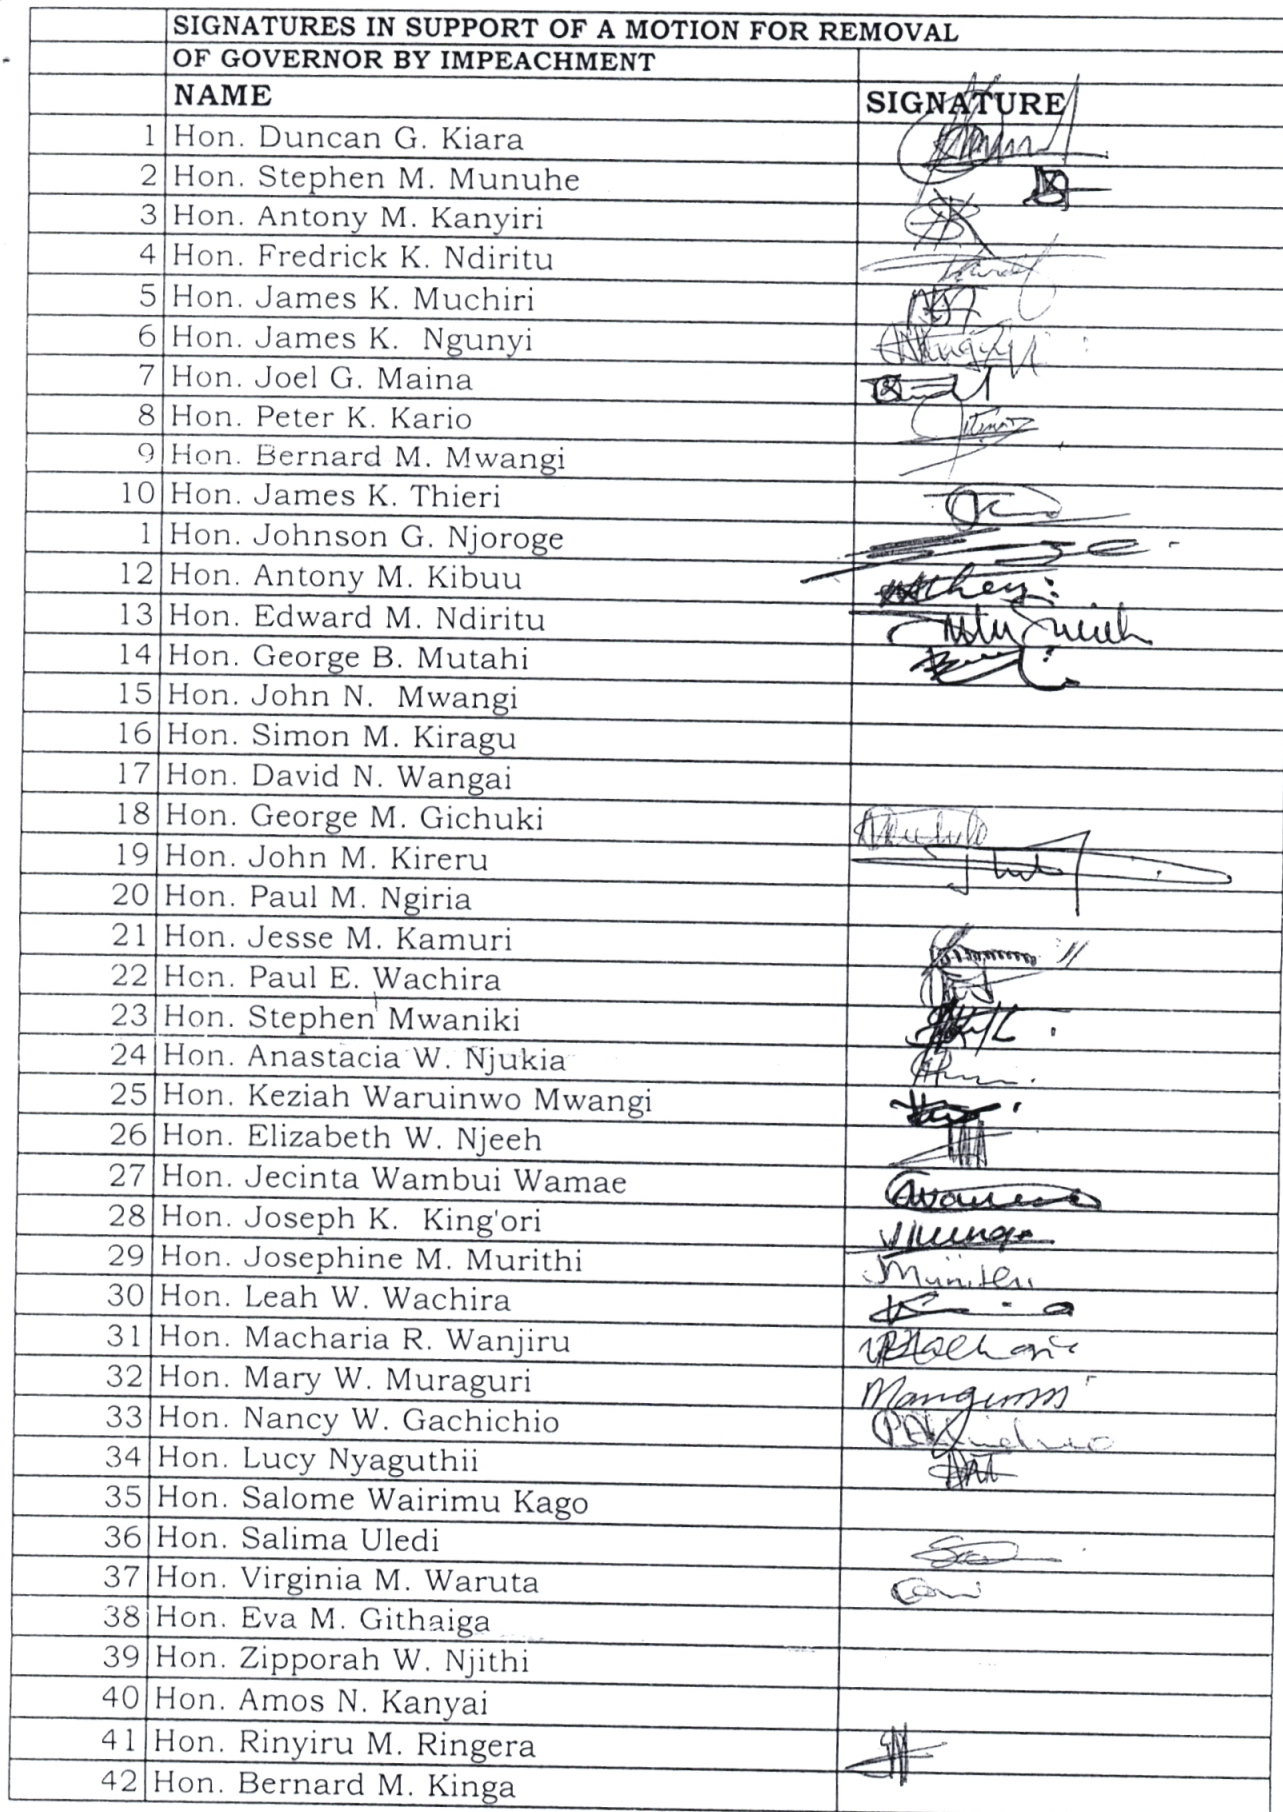 SIGNATURES IN SUPPORT OF A MOTION FOR REMOVAL
OF GOVERNOR BY IMPEACHMENT
NAME SIGNATURE
1 Hon. Duncan G. Kiara
2 Hon. Stephen M. Munuhe
3 Hon. Antony M. Kanyiri
4 Hon. Fredrick K. Ndiritu
5 Hon. James K. Muchiri
6 Hon. James K. Ngunyi
7 Hon. Joel G. Maina
8 Hon. Peter K. Kario
9 Hon. Bernard M. Mwangi
10 Hon. James K. Thieri
1 Hon. Johnson G. Njoroge
12 Hon. Antony M. Kibuu
13 Hon. Edward M. Ndiritu
14 Hon. George B. Mutahi
15 Hon. John N. Mwangi
16 Hon. Simon M. Kiragu
17 Hon. David N. Wangai
18 Hon. George M. Gichuki
19 Hon. John M. Kireru
20 Hon. Paul M. Ngiria
21 Hon. Jesse M. Kamuri
22 Hon. Paul E. Wachira
23 Hon. Stephen Mwaniki
24 Hon. Anastacia W. Njukia
25 Hon. Keziah Waruinwo Mwangi
26 Hon. Elizabeth W. Njeeh
27 Hon. Jecinta Wambui Wamae
28 Hon. Joseph K. King'ori
29 Hon. Josephine M. Murithi
30 Hon. Leah W. Wachira
31 Hon. Macharia R. Wanjiru
32 Hon. Mary W. Muraguri
33 Hon. Nancy W. Gachichio
34 Hon. Lucy Nyaguthii
35 Hon. Salome Wairimu Kago
36 Hon. Salima Uledi
37 Hon. Virginia M. Waruta
38 Hon. Eva M. Githaiga
39 Hon. Zipporah W. Njithi
40 Hon. Amos N. Kanyai
41 Hon. Rinyiru M. Ringera
42 Hon. Bernard M. Kinga